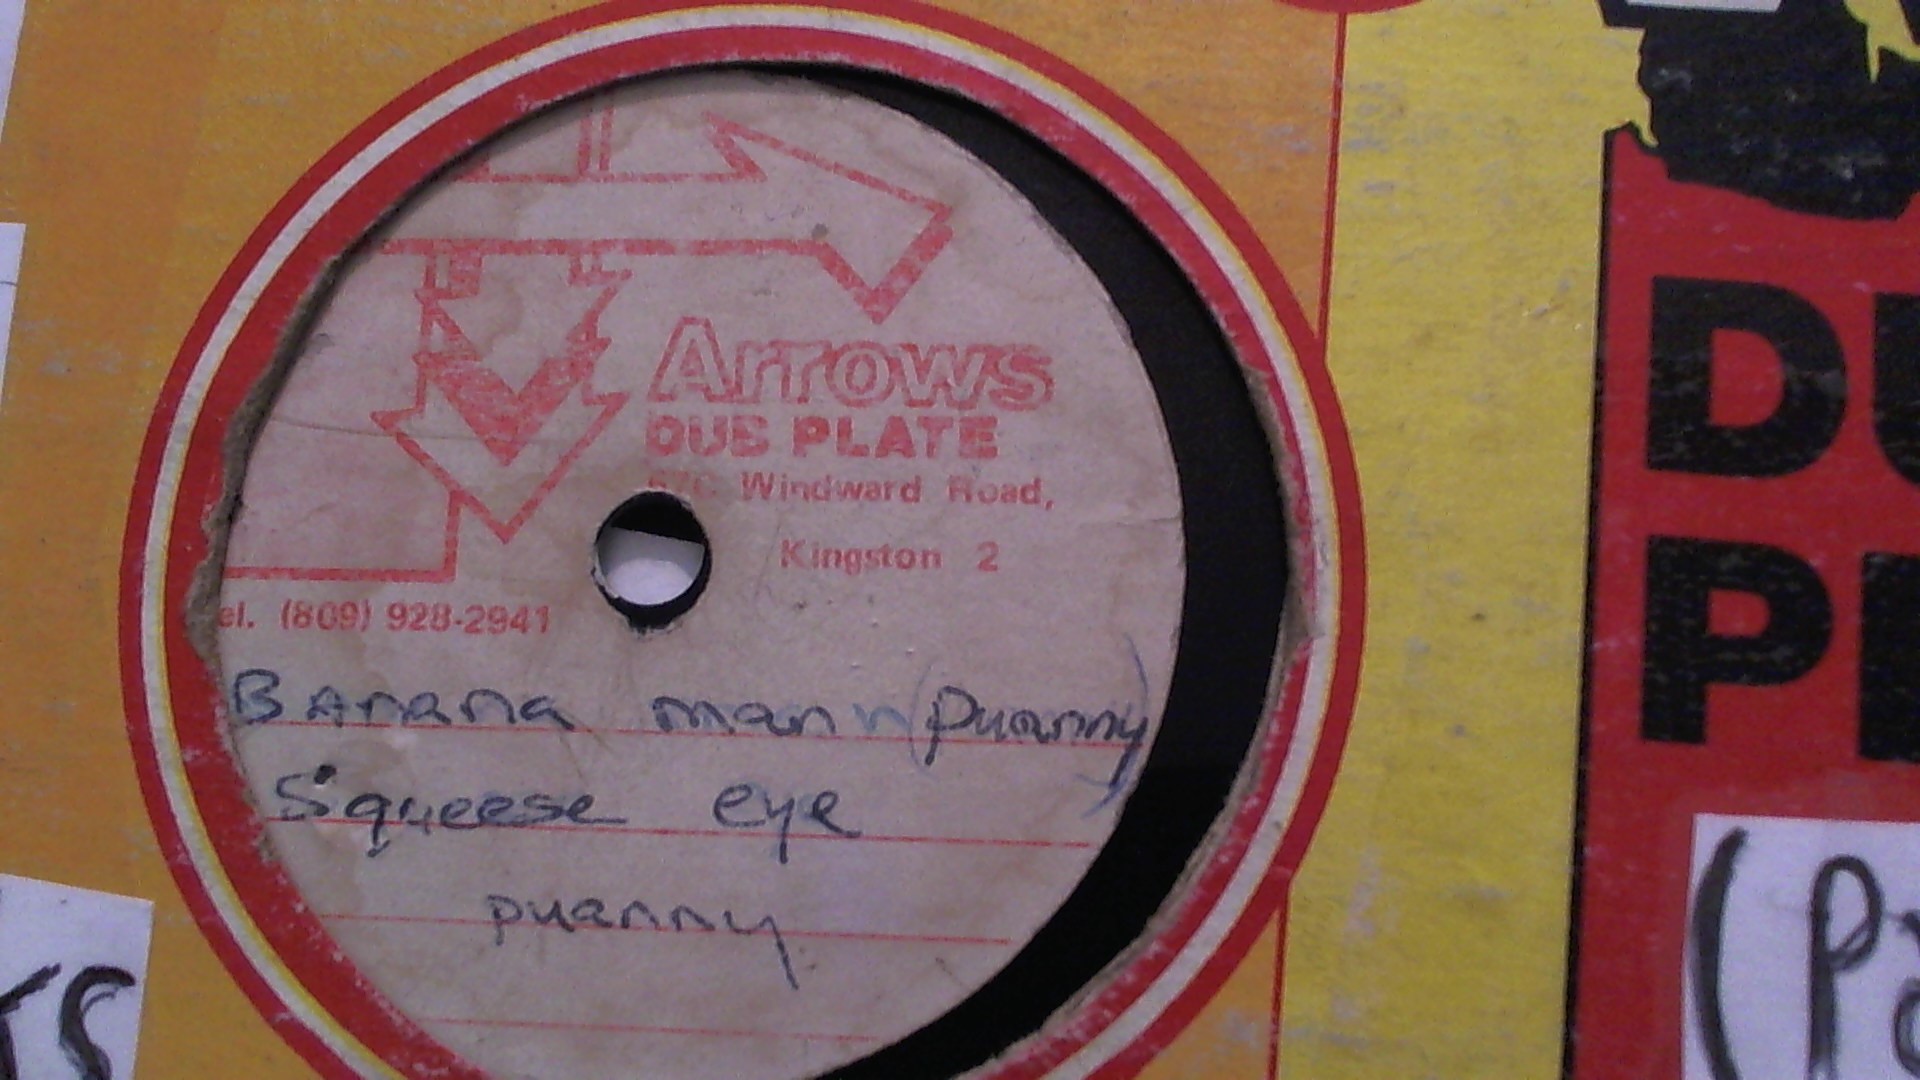 Arrows
DUB PLATE
Windward Road,
Kingston 2
el. (809) 928-2941
Banana man (puanny)
Squeese eye
puanny
DU
P
(Pa